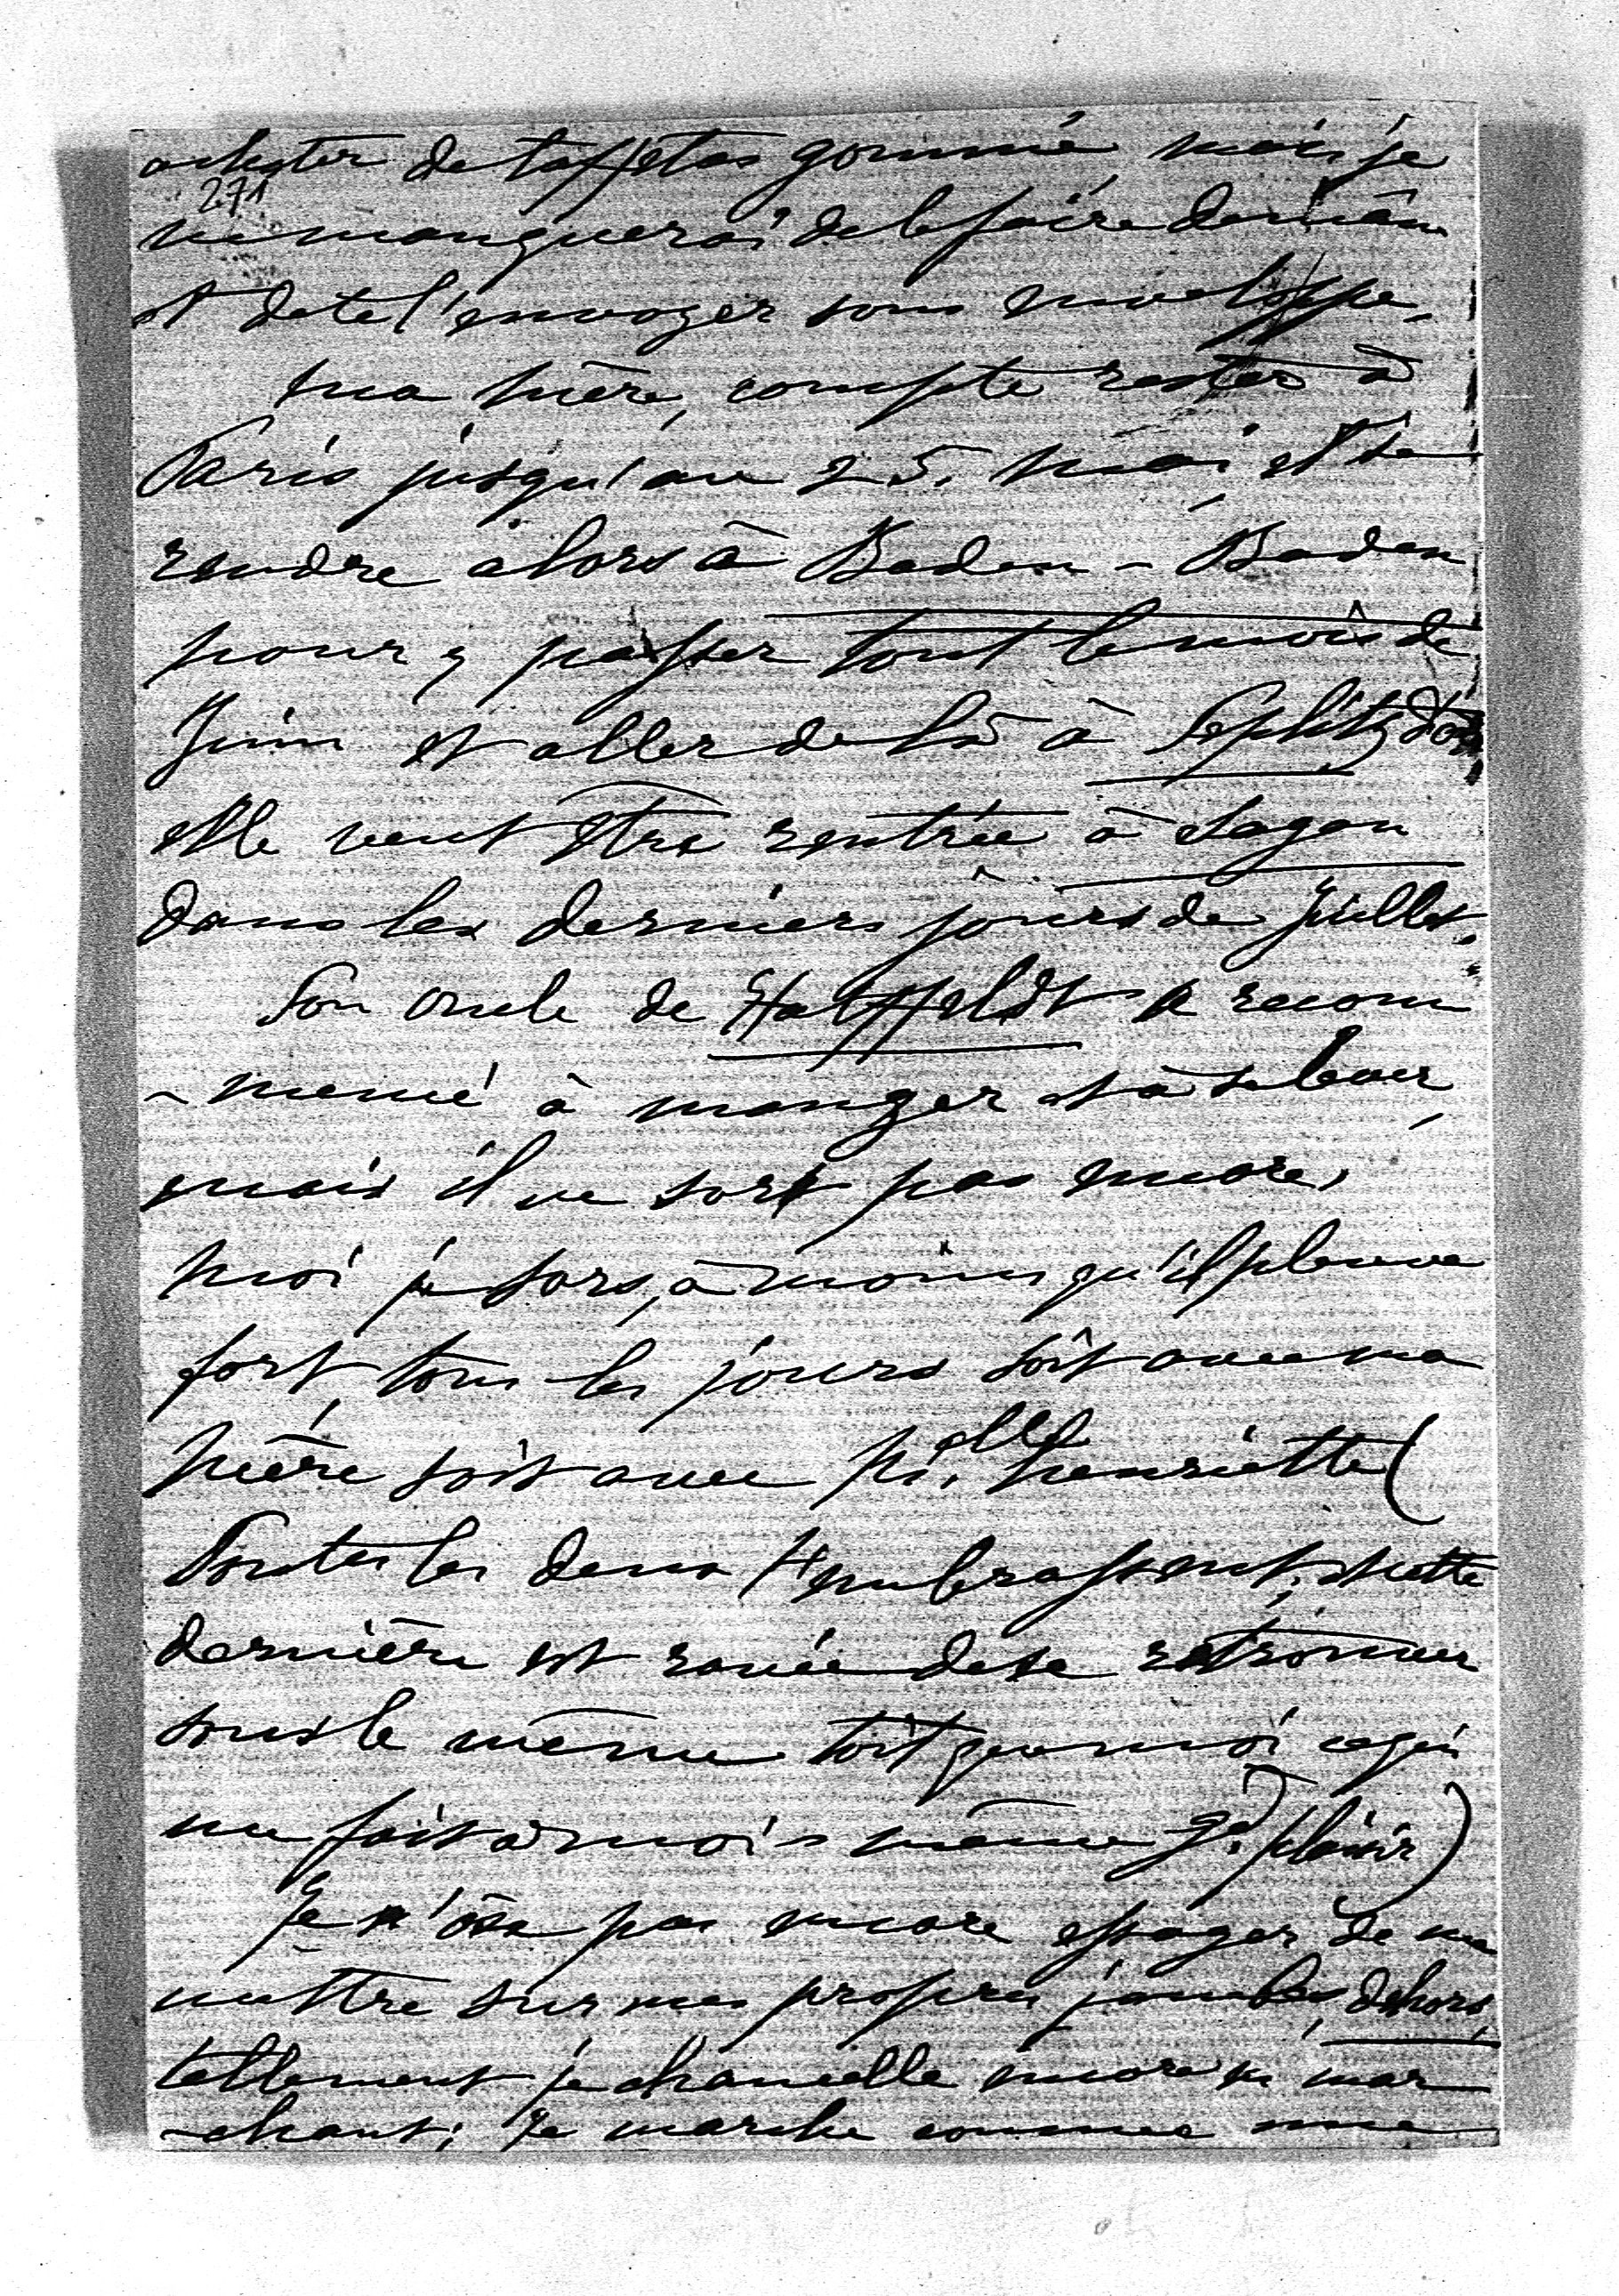 acheter de taffetas gommé, mais je
271
ne manquerai de le faire demain
et de te l'envoyer sous enveloppe.
Ma mère, compte rester à
Paris jusqu'au 25. Mai, et se
rendre alors à Baden-Baden
pour y passer tout le mois de
Juin et aller de là à Teplitz d'où
elle veut être rentrée à Sagan
dans les derniers jours de Juillet.
Ton oncle de Hatzfeldt a recom
-mencé à manger et à se lever,
mais il ne sort pas encore,
Moi je sors, à moins qu'il pleuve
fort, tous les jours soit avec ma
Mère soit avec M.elle Henriette (
Toutes les deux t'embrassent; et cette
dernière est ravie de se retrouver
sous le même toit que moi ce qui
me fait à moi-même gd. plaisir)
Je n'ose pas encore essayer de me
mettre sur mes propres jambes, dehors,
tellement je chancelle encore en mar
-chant; Je marche comme une